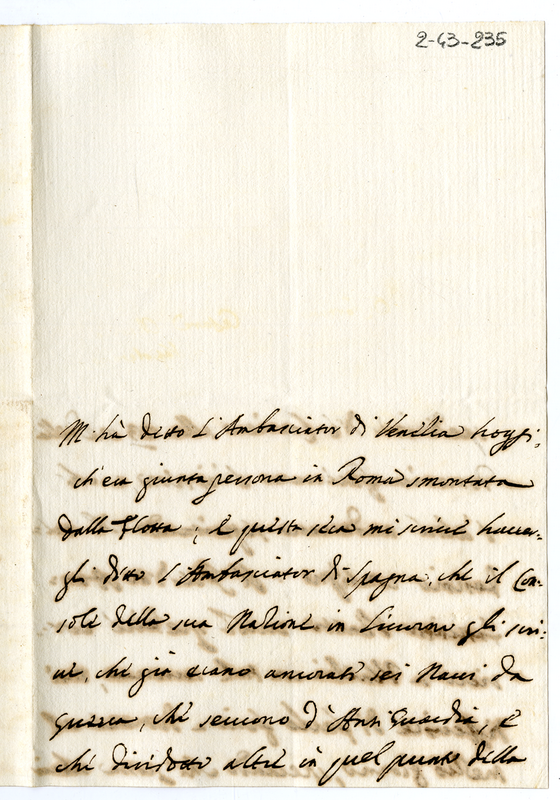 2-43-235
M'hà detto l'Ambasciator di Venetia hoggi,
ch'era giunta persona in Roma smontata
dalla flotta; e questa sera mi scrive haver-
gli detto l'Ambasciator di Spagna, che il Con-
sole della sua Natione in Livorno gli scri-
ve, che già erano ancorate sei Navi da
guerra, che servono d'Anti Guardia, e
che dicidotto altre in quel punto della